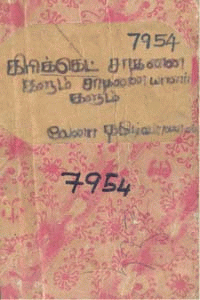 7954
கிரிக்கெட் சாதனை
களும் சாதனையாளர்
களும்
7954